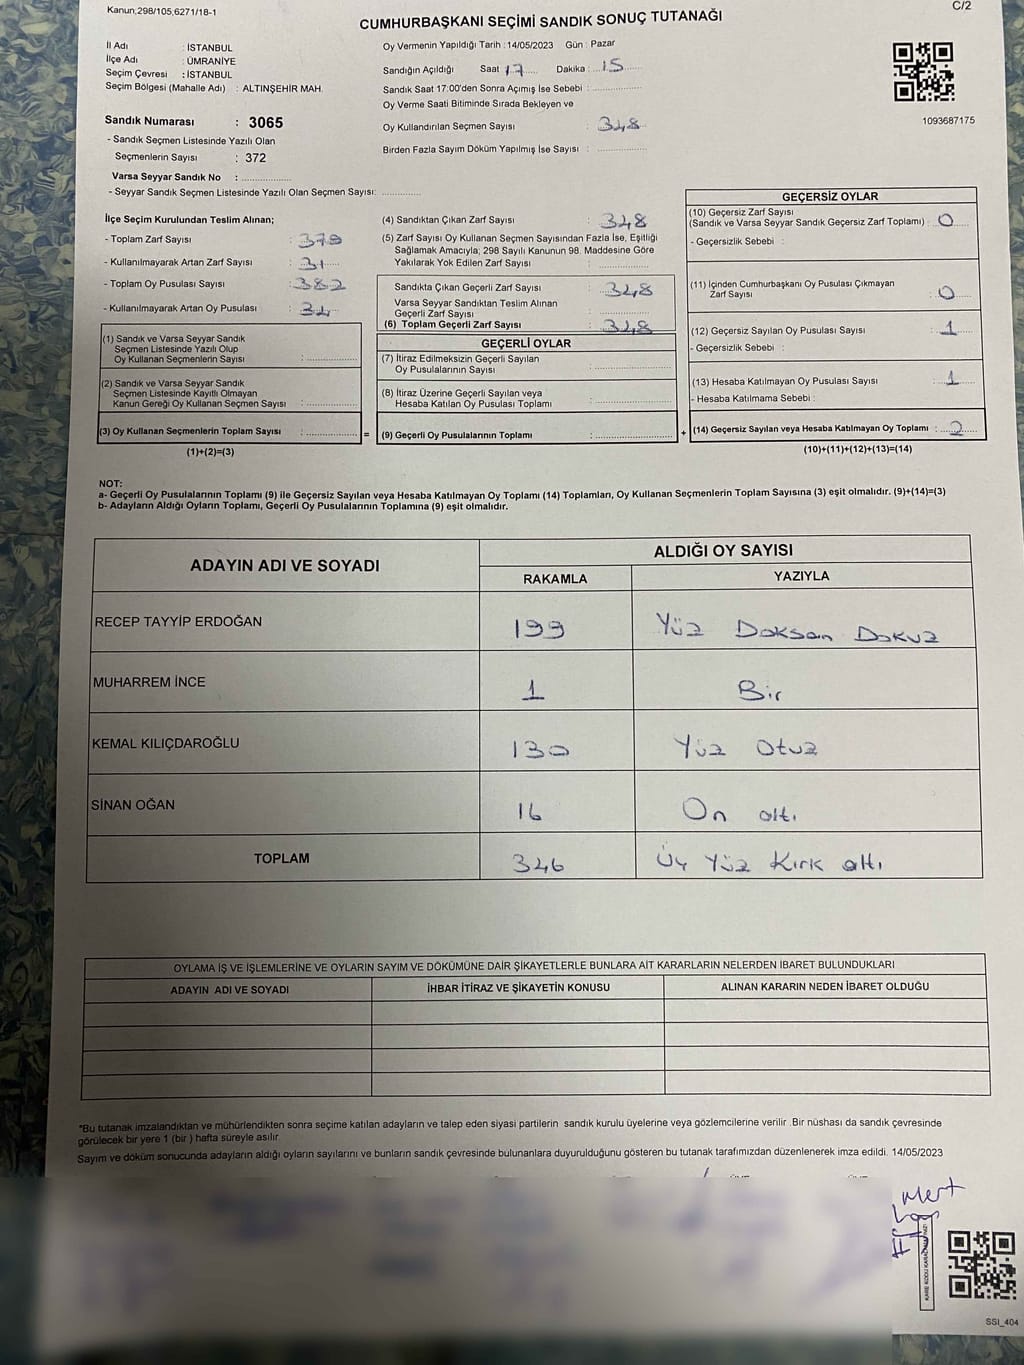 Kanun,298/105,6271/18-1
C/2
CUMHURBAŞKANI SEÇİMİ SANDIK SONUÇ TUTANAĞI
İl Adı : İSTANBUL
İlçe Adı : ÜMRANİYE
Seçim Çevresi : İSTANBUL
Seçim Bölgesi (Mahalle Adı) : ALTINŞEHİR MAH.
Sandık Numarası : 3065
- Sandık Seçmen Listesinde Yazılı Olan
Seçmenlerin Sayısı : 372
Varsa Seyyar Sandık No :
- Seyyar Sandık Seçmen Listesinde Yazılı Olan Seçmen Sayısı:
Oy Vermenin Yapıldığı Tarih : 14/05/2023 Gün : Pazar
Sandığın Açıldığı Saat 17 Dakika : 15
Sandık Saat 17:00'den Sonra Açımış İse Sebebi :
Oy Verme Saati Bitiminde Sırada Bekleyen ve
Oy Kullandırılan Seçmen Sayısı : 348
Birden Fazla Sayım Döküm Yapılmış İse Sayısı :
1093687175
İlçe Seçim Kurulundan Teslim Alınan;
- Toplam Zarf Sayısı : 379
- Kullanılmayarak Artan Zarf Sayısı : 31
- Toplam Oy Pusulası Sayısı : 382
- Kullanılmayarak Artan Oy Pusulası : 34
(1) Sandık ve Varsa Seyyar Sandık
Seçmen Listesinde Yazılı Olup
Oy Kullanan Seçmenlerin Sayısı :
(2) Sandık ve Varsa Seyyar Sandık
Seçmen Listesinde Kayıtlı Olmayan
Kanun Gereği Oy Kullanan Seçmen Sayısı :
(3) Oy Kullanan Seçmenlerin Toplam Sayısı :
(1)+(2)=(3)
(4) Sandıktan Çıkan Zarf Sayısı : 348
(5) Zarf Sayısı Oy Kullanan Seçmen Sayısından Fazla İse, Eşitliği
Sağlamak Amacıyla; 298 Sayılı Kanunun 98. Maddesine Göre
Yakılarak Yok Edilen Zarf Sayısı :
Sandıkta Çıkan Geçerli Zarf Sayısı : 348
Varsa Seyyar Sandıktan Teslim Alınan
Geçerli Zarf Sayısı :
(6) Toplam Geçerli Zarf Sayısı : 348
GEÇERLİ OYLAR
(7) İtiraz Edilmeksizin Geçerli Sayılan
Oy Pusulalarının Sayısı :
(8) İtiraz Üzerine Geçerli Sayılan veya
Hesaba Katılan Oy Pusulası Toplamı :
= (9) Geçerli Oy Pusulalarının Toplamı :
GEÇERSİZ OYLAR
(10) Geçersiz Zarf Sayısı
(Sandık ve Varsa Seyyar Sandık Geçersiz Zarf Toplamı) : 0
- Geçersizlik Sebebi :
(11) İçinden Cumhurbaşkanı Oy Pusulası Çıkmayan
Zarf Sayısı : 0
(12) Geçersiz Sayılan Oy Pusulası Sayısı : 1
- Geçersizlik Sebebi :
(13) Hesaba Katılmayan Oy Pusulası Sayısı : 1
- Hesaba Katılmama Sebebi :
+ (14) Geçersiz Sayılan veya Hesaba Katılmayan Oy Toplamı : 2
(10)+(11)+(12)+(13)=(14)
NOT:
a- Geçerli Oy Pusulalarının Toplamı (9) ile Geçersiz Sayılan veya Hesaba Katılmayan Oy Toplamı (14) Toplamları, Oy Kullanan Seçmenlerin Toplam Sayısına (3) eşit olmalıdır. (9)+(14)=(3)
b- Adayların Aldığı Oyların Toplamı, Geçerli Oy Pusulalarının Toplamına (9) eşit olmalıdır.
ADAYIN ADI VE SOYADI ALDIĞI OY SAYISI
RAKAMLA YAZIYLA
RECEP TAYYİP ERDOĞAN 199 Yüz Doksan Dokuz
MUHARREM İNCE 1 Bir
KEMAL KILIÇDAROĞLU 130 Yüz Otuz
SİNAN OĞAN 16 On altı
TOPLAM 346 Üç Yüz Kırk altı
OYLAMA İŞ VE İŞLEMLERİNE VE OYLARIN SAYIM VE DÖKÜMÜNE DAİR ŞİKAYETLERLE BUNLARA AİT KARARLARIN NELERDEN İBARET BULUNDUKLARI
ADAYIN ADI VE SOYADI İHBAR İTİRAZ VE ŞİKAYETİN KONUSU ALINAN KARARIN NEDEN İBARET OLDUĞU
*Bu tutanak imzalandıktan ve mühürlendikten sonra seçime katılan adayların ve talep eden siyasi partilerin sandık kurulu üyelerine veya gözlemcilerine verilir .Bir nüshası da sandık çevresinde
görülecek bir yere 1 (bir ) hafta süreyle asılır.
Sayım ve döküm sonucunda adayların aldığı oyların sayılarını ve bunların sandık çevresinde bulunanlara duyurulduğunu gösteren bu tutanak tarafımızdan düzenlenerek imza edildi. 14/05/2023
Mert
SSI_404